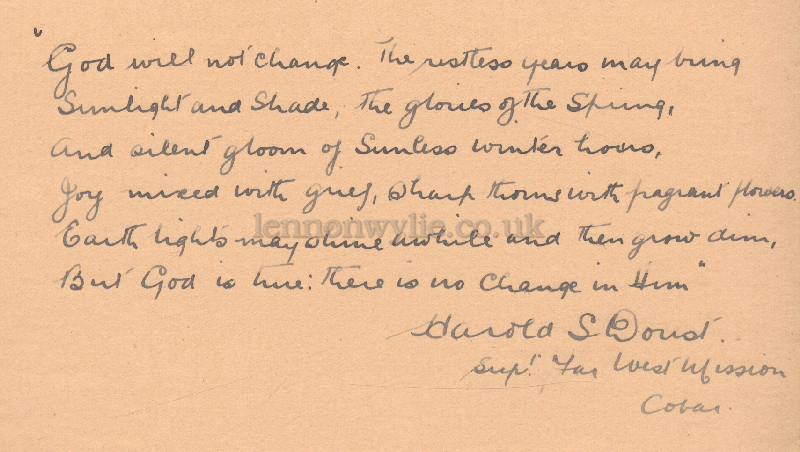 "God will not change. The restless years may bring
Sunlight and Shade, the glories of the Spring,
And silent gloom of Sunless winter hours,
Joy mixed with grief, sharp thorns with fragrant flowers.
Earth lights may shine awhile and then grow dim,
But God is true: there is no change in Him"
Harold S Doust.
Supt. Far West Mission
Cobar.
lennonwylie.co.uk